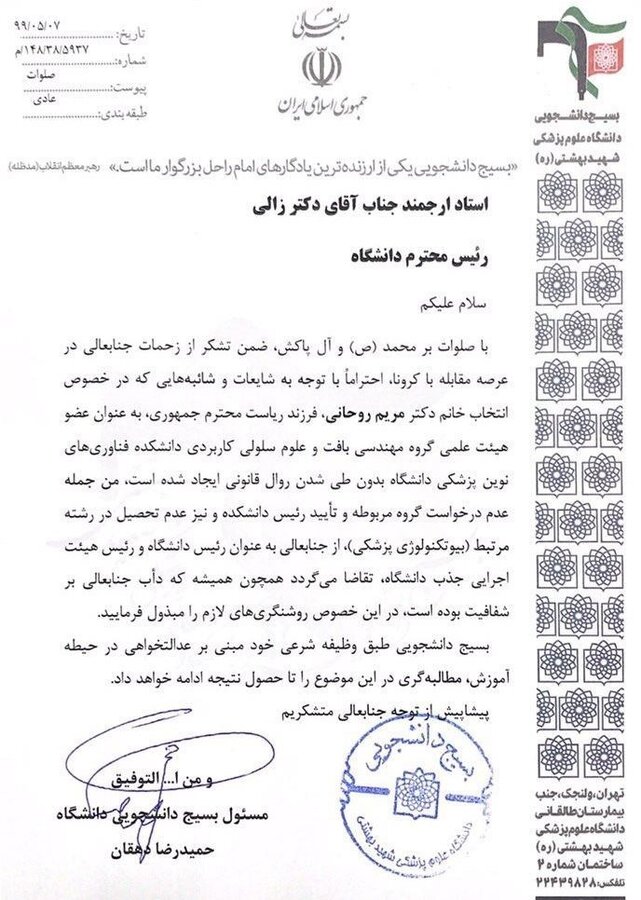 بسمه تعالی
جمهوری اسلامی ایران
تاریخ: ۹۹/۰۵/۰۷
شماره: ۱۴۸/۳۸/۵۹۳۷/م
پیوست: صلوات
طبقه بندی: عادی
بسیج دانشجویی
دانشگاه علوم پزشکی
شهید بهشتی (ره)
«بسیج دانشجویی یکی از ارزنده‌ترین یادگارهای امام راحل بزرگوار ما است.» رهبر معظم انقلاب (مدظله)
استاد ارجمند جناب آقای دکتر زالی
رئیس محترم دانشگاه
سلام علیکم
با صلوات بر محمد (ص) و آل پاکش، ضمن تشکر از زحمات جنابعالی در
عرصه مقابله با کرونا، احتراماً با توجه به شایعات و شائبه‌هایی که در خصوص
انتخاب خانم دکتر مریم روحانی، فرزند ریاست محترم جمهوری، به عنوان عضو
هیئت علمی گروه مهندسی بافت و علوم سلولی کاربردی دانشکده فناوری‌های
نوین پزشکی دانشگاه بدون طی شدن روال قانونی ایجاد شده است، من جمله
عدم درخواست گروه مربوطه و تأیید رئیس دانشکده و نیز عدم تحصیل در رشته
مرتبط (بیوتکنولوژی پزشکی)، از جنابعالی به عنوان رئیس دانشگاه و رئیس هیئت
اجرایی جذب دانشگاه، تقاضا می‌گردد همچون همیشه که دأب جنابعالی بر
شفافیت بوده است، در این خصوص روشنگری‌های لازم را مبذول فرمایید.
بسیج دانشجویی طبق وظیفه شرعی خود مبنی بر عدالتخواهی در حیطه
آموزش، مطالبه‌گری در این موضوع را تا حصول نتیجه ادامه خواهد داد.
پیشاپیش از توجه جنابعالی متشکریم
و من ا... التوفیق
مسئول بسیج دانشجویی دانشگاه
حمیدرضا دهقان
بسیج دانشجویی
دانشگاه علوم پزشکی شهید بهشتی
تهران، ولنجک، جنب
بیمارستان طالقانی
دانشگاه علوم پزشکی
شهید بهشتی (ره)
ساختمان شماره ۲
تلفکس: ۲۲۴۳۹۸۲۸